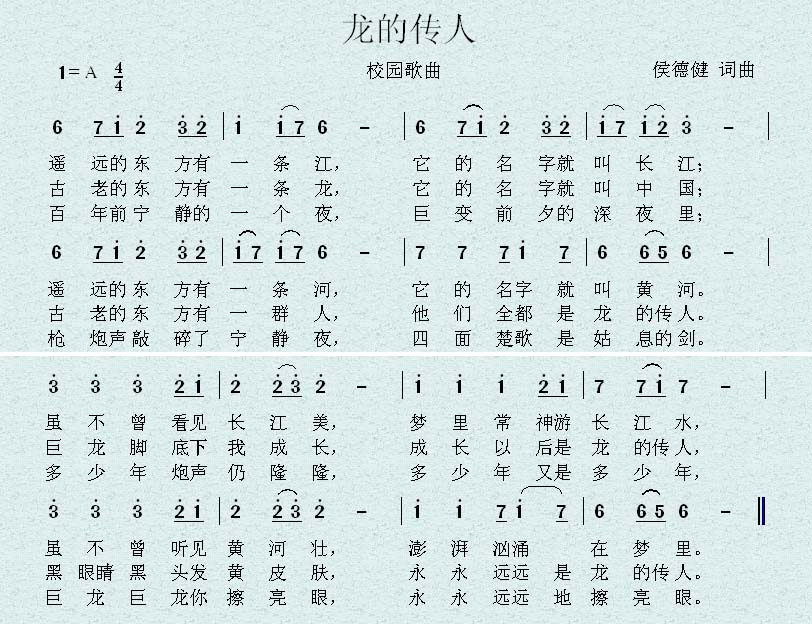 龙的传人
1=A 4/4 校园歌曲 侯德健 词曲
6 7 1̇ 2̇ 3̇ 2̇ | 1̇ 1̇ 7 6 – | 6 7 1̇ 2̇ 3̇ 2̇ | 1̇ 7 1̇ 2̇ 3̇ – |
遥 远的 东 方有 一 条 江， 它 的 名 字就 叫 长 江；
古 老的 东 方有 一 条 龙， 它 的 名 字就 叫 中 国；
百 年前 宁 静的 一 个 夜， 巨 变 前 夕的 深 夜 里；
6 7 1̇ 2̇ 3̇ 2̇ | 1̇ 7 1̇ 7 6 – | 7 7 7 1̇ 7 | 6 6 5 6 – |
遥 远的 东 方有 一 条 河， 它 的 名字 就 叫 黄 河。
古 老的 东 方有 一 群 人， 他 们 全都 是 龙 的传 人。
枪 炮声 敲 碎了 宁 静 夜， 四 面 楚歌 是 姑 息的 剑。
3̇ 3̇ 3̇ 2̇ 1̇ | 2̇ 2̇ 3̇ 2̇ – | 1̇ 1̇ 1̇ 2̇ 1̇ | 7 7 1̇ 7 – |
虽 不 曾 看见 长 江 美， 梦 里 常 神游 长 江 水，
巨 龙 脚 底下 我 成 长， 成 长 以 后是 龙 的传 人，
多 少 年 炮声 仍 隆 隆， 多 少 年 又是 多 少 年，
3̇ 3̇ 3̇ 2̇ 1̇ | 2̇ 2̇ 3̇ 2̇ – | 1̇ 1̇ 7 1̇ 7 | 6 6 5 6 – ‖
虽 不 曾 听见 黄 河 壮， 澎 湃 汹涌 在 梦 里。
黑 眼睛 黑 头发 黄 皮 肤， 永 永 远远 是 龙 的传 人。
巨 龙 巨 龙你 擦 亮 眼， 永 永 远远 地 擦 亮 眼。